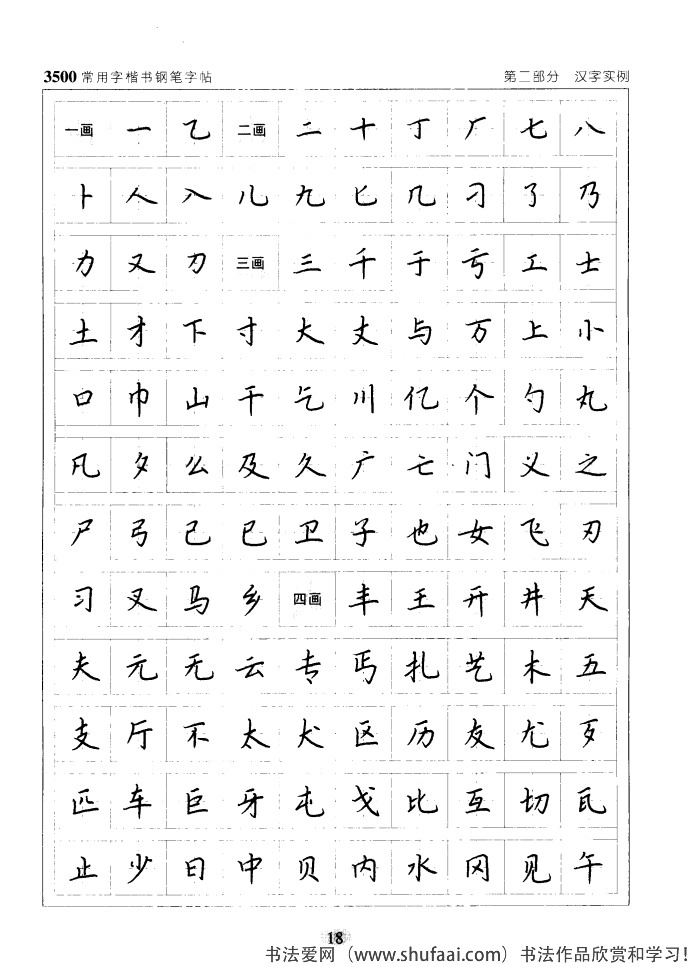 3500常用字楷书钢笔字帖 第二部分 汉字实例
一画 一 乙 二画 二 十 丁 厂 七 八
卜 人 入 儿 九 匕 几 刁 了 乃
力 又 刀 三画 三 千 于 亏 工 士
土 才 下 寸 大 丈 与 万 上 小
口 巾 山 干 乞 川 亿 个 勺 丸
凡 夕 么 及 久 广 亡 门 义 之
尸 弓 己 已 卫 子 也 女 飞 刃
习 叉 马 乡 四画 丰 王 开 井 天
夫 元 无 云 专 丐 扎 艺 木 五
支 厅 不 太 犬 区 历 友 尤 歹
匹 车 巨 牙 屯 戈 比 互 切 瓦
止 少 日 中 贝 内 水 冈 见 午
18
书法爱网(www.shufaai.com)书法作品欣赏和学习!